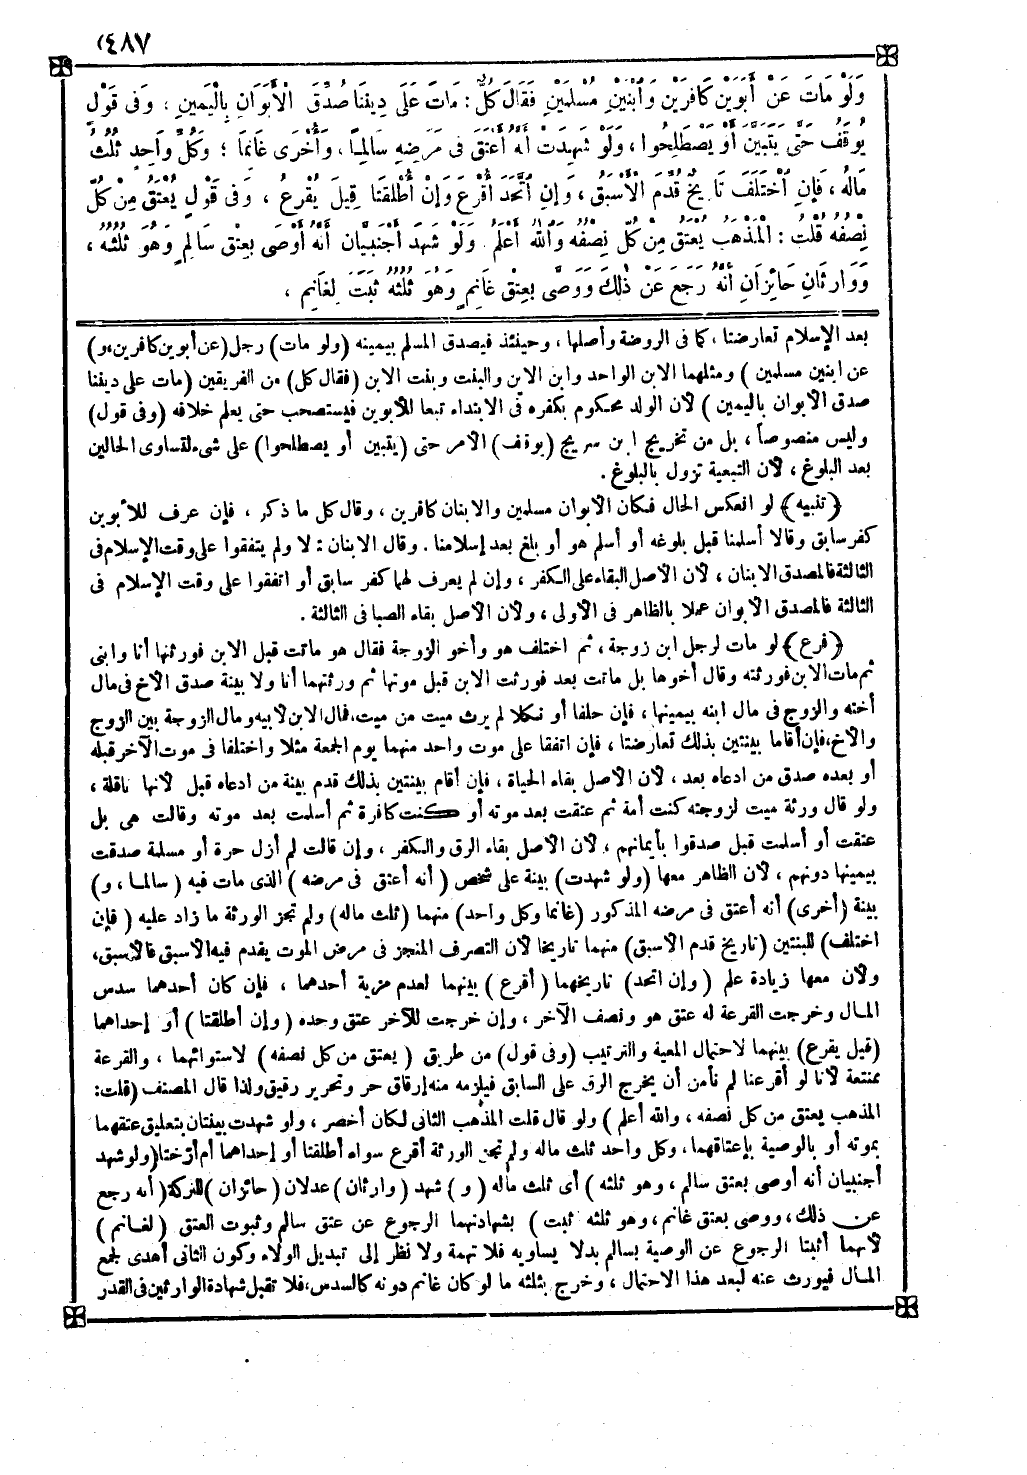 ٤٨٧
وَلَوْ مَاتَ عَنْ أَبَوَيْنِ كَافِرَيْنِ وَٱبْنَيْنِ مُسْلِمَيْنِ فَقَالَ كُلٌّ : مَاتَ عَلَى دِينِنَا صُدِّقَ الْأَبَوَانِ بِالْيَمِينِ ، وَفِى قَوْلٍ
يُوقَفُ حَتَّى يَتَبَيَّنَ أَوْ يَصْطَلِحُوا ، وَلَوْ شَهِدَتْ أَنَّهُ أَعْتَقَ فِى مَرَضِهِ سَالِمًا ، وَأُخْرَى غَانِمًا ؛ وَكُلُّ وَاحِدٍ ثُلُثُ
مَالِهِ ، فَإِنِ ٱخْتَلَفَ تَارِيخٌ قُدِّمَ الْأَسْبَقُ ، وَإِنِ ٱتَّحَدَ أُقْرِعَ وَإِنْ أَطْلَقَتَا قِيلَ يُقْرَعُ ، وَفِى قَوْلٍ يُعْتَقُ مِنْ كُلٍّ
نِصْفُهُ قُلْتُ : الْمَذْهَبُ يُعْتَقُ مِنْ كُلٍّ نِصْفُهُ وَٱللّٰهُ أَعْلَمُ وَلَوْ شَهِدَ أَجْنَبِيَّانِ أَنَّهُ أَوْصَى بِعِتْقِ سَالِمٍ وَهُوَ ثُلُثُهُ ،
وَوَارِثَانِ حَائِزَانِ أَنَّهُ رَجَعَ عَنْ ذٰلِكَ وَوَصَّى بِعِتْقِ غَانِمٍ وَهُوَ ثُلُثُهُ ثَبَتَ لِغَانِمٍ ،
بعد الإسلام تعارضتا ، كما فى الروضة وأصلها ، وحينئذ فيصدق المسلم بيمينه (ولو مات) رجل (عن أبوين كافرين ، و)
عن ابنين مسلمين ) ومثلهما الابن الواحد وابن الابن والبنت وبنت الابن (فقال كل) من الفريقين (مات على ديننا
صدق الأبوان باليمين ) لأن الولد محكوم بكفره فى الابتداء تبعا للأبوين فيستصحب حتى يعلم خلافه (وفى قول)
وليس منصوصاً ، بل من تخريج ابن سريج (يوقف) الأمر حتى (يتبين أو يصطلحوا) على شىء لتساوى الحالين
بعد البلوغ ، لأن التبعية تزول بالبلوغ .
﴿تنبيه﴾ لو انعكس الحال فكان الأبوان مسلمين والابنان كافرين ، وقال كل ما ذكر ، فإن عرف للأبوين
كفر سابق وقالا أسلمنا قبل بلوغه أو أسلم هو أو بلغ بعد إسلامنا . وقال الابنان : لا ولم يتفقوا على وقت الإسلام فى
الثالثة فالمصدق الابنان ، لأن الأصل البقاء على الكفر ، وإن لم يعرف لهما كفر سابق أو اتفقوا على وقت الإسلام فى
الثالثة فالمصدق الأبوان عملا بالظاهر فى الأولى ، ولأن الأصل بقاء الصبا فى الثالثة .
﴿فرع﴾ لو مات لرجل ابن زوجة ، ثم اختلف هو وأخو الزوجة فقال هو ماتت قبل الابن فورثتها أنا وابنى
ثم مات الابن فورثته وقال أخوها بل ماتت بعد فورثت الابن قبل موتها ثم ورثتهما أنا ولا بينة صدق الأخ فى مال
أخته والزوج فى مال ابنه بيمينها ، فإن حلفا أو نكلا لم يرث ميت من ميت ، فمال الابن لأبيه ومال الزوجة بين الزوج
والأخ ، فإن أقاما بينتين بذلك تعارضتا ، فإن اتفقا على موت واحد منهما يوم الجمعة مثلا واختلفا فى موت الآخر قبله
أو بعده صدق من ادعاه بعد ، لأن الأصل بقاء الحياة ، فإن أقام بينتين بذلك قدم بينة من ادعاه قبل لأنها ناقلة ،
ولو قال ورثة ميت لزوجته كنت أمة ثم عتقت بعد موته أو كنت كافرة ثم أسلمت بعد موته وقالت هى بل
عتقت أو أسلمت قبل صدقوا بأيمانهم ، لأن الأصل بقاء الرق والكفر ، وإن قالت لم أزل حرة أو مسلمة صدقت
بيمينها دونهم ، لأن الظاهر معها (ولو شهدت) بينة على شخص ( أنه أعتق فى مرضه ) الذى مات فيه ( سالما ، و )
بينة (أخرى) أنه أعتق فى مرضه المذكور (غانما وكل واحد) منهما (ثلث ماله) ولم تجز الورثة ما زاد عليه ( فإن
اختلف) للبينتين (تاريخ قدم الأسبق) منهما تاريخا لأن التصرف المنجز فى مرض الموت يقدم فيه الأسبق فالأسبق ،
ولأن معها زيادة علم ( وإن اتحد) تاريخهما ( أقرع ) بينهما لعدم مزية أحدهما ، فإن كان أحدهما سدس
المال وخرجت القرعة له عتق هو ونصف الآخر ، وإن خرجت للآخر عتق وحده ( وإن أطلقتا ) أو إحداهما
(قيل يقرع) بينهما لاحتمال المعية والترتيب (وفى قول) من طريق ( يعتق من كل نصفه ) لاستوائهما ، والقرعة
ممتنعة لأنا لو أقرعنا لم نأمن أن يخرج الرق على السابق فيلزمه منه إرقاق حر وتحرير رقيق ولذا قال المصنف (قلت:
المذهب يعتق من كل نصفه ، والله أعلم ) ولو قال قلت المذهب الثانى لكان أخصر ، ولو شهدت بينتان بتعليق عتقهما
بموته أو بالوصية بإعتاقهما ، وكل واحد ثلث ماله ولم تجز الورثة أقرع سواء أطلقتا أو إحداهما أم أرختا (ولو شهد
أجنبيان أنه أوصى بعتق سالم ، وهو ثلثه ) أى ثلث ماله ( و ) شهد ( وارثان ) عدلان ( حائزان ) للتركة ( أنه رجع
عن ذلك ، ووصى بعتق غانم ، وهو ثلثه ثبت ) بشهادتهما الرجوع عن عتق سالم وثبوت العتق ( لغانم )
لأنهما أثبتا الرجوع عن الوصية بسالم بدلا يساويه فلا تهمة ولا نظر إلى تبديل الولاء وكون الثانى أهدى لجمع
المال فيورث عنه لبعد هذا الاحتمال ، وخرج بثلثه ما لو كان غانم دونه كالسدس ، فلا تقبل شهادة الوارثين فى القدر